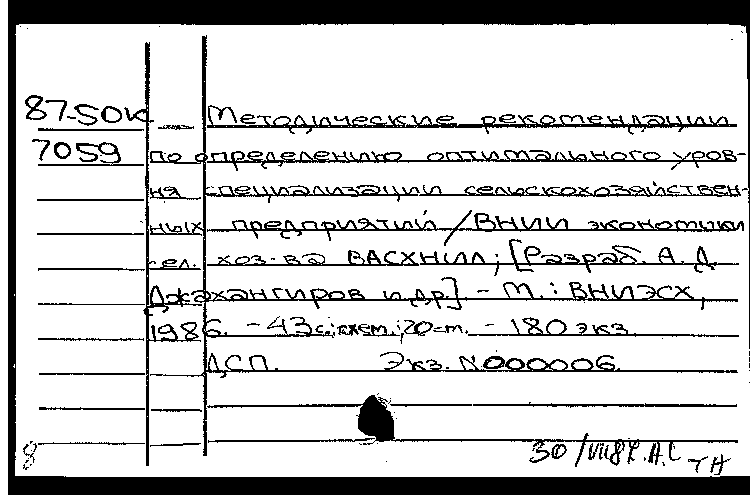 87-50к Методические рекомендации
7059 по определению оптимального уров-
ня специализации сельскохозяйствен-
ных предприятий / ВНИИ экономики
сел. хоз-ва ВАСХНИЛ; [Разраб. А. Д.
Джахангиров и др.] - М.: ВНИЭСХ,
1986. - 43 с.: схем.; 20 см. - 180 экз.
ДСП. Экз. N000006.
8 30/VII 87.